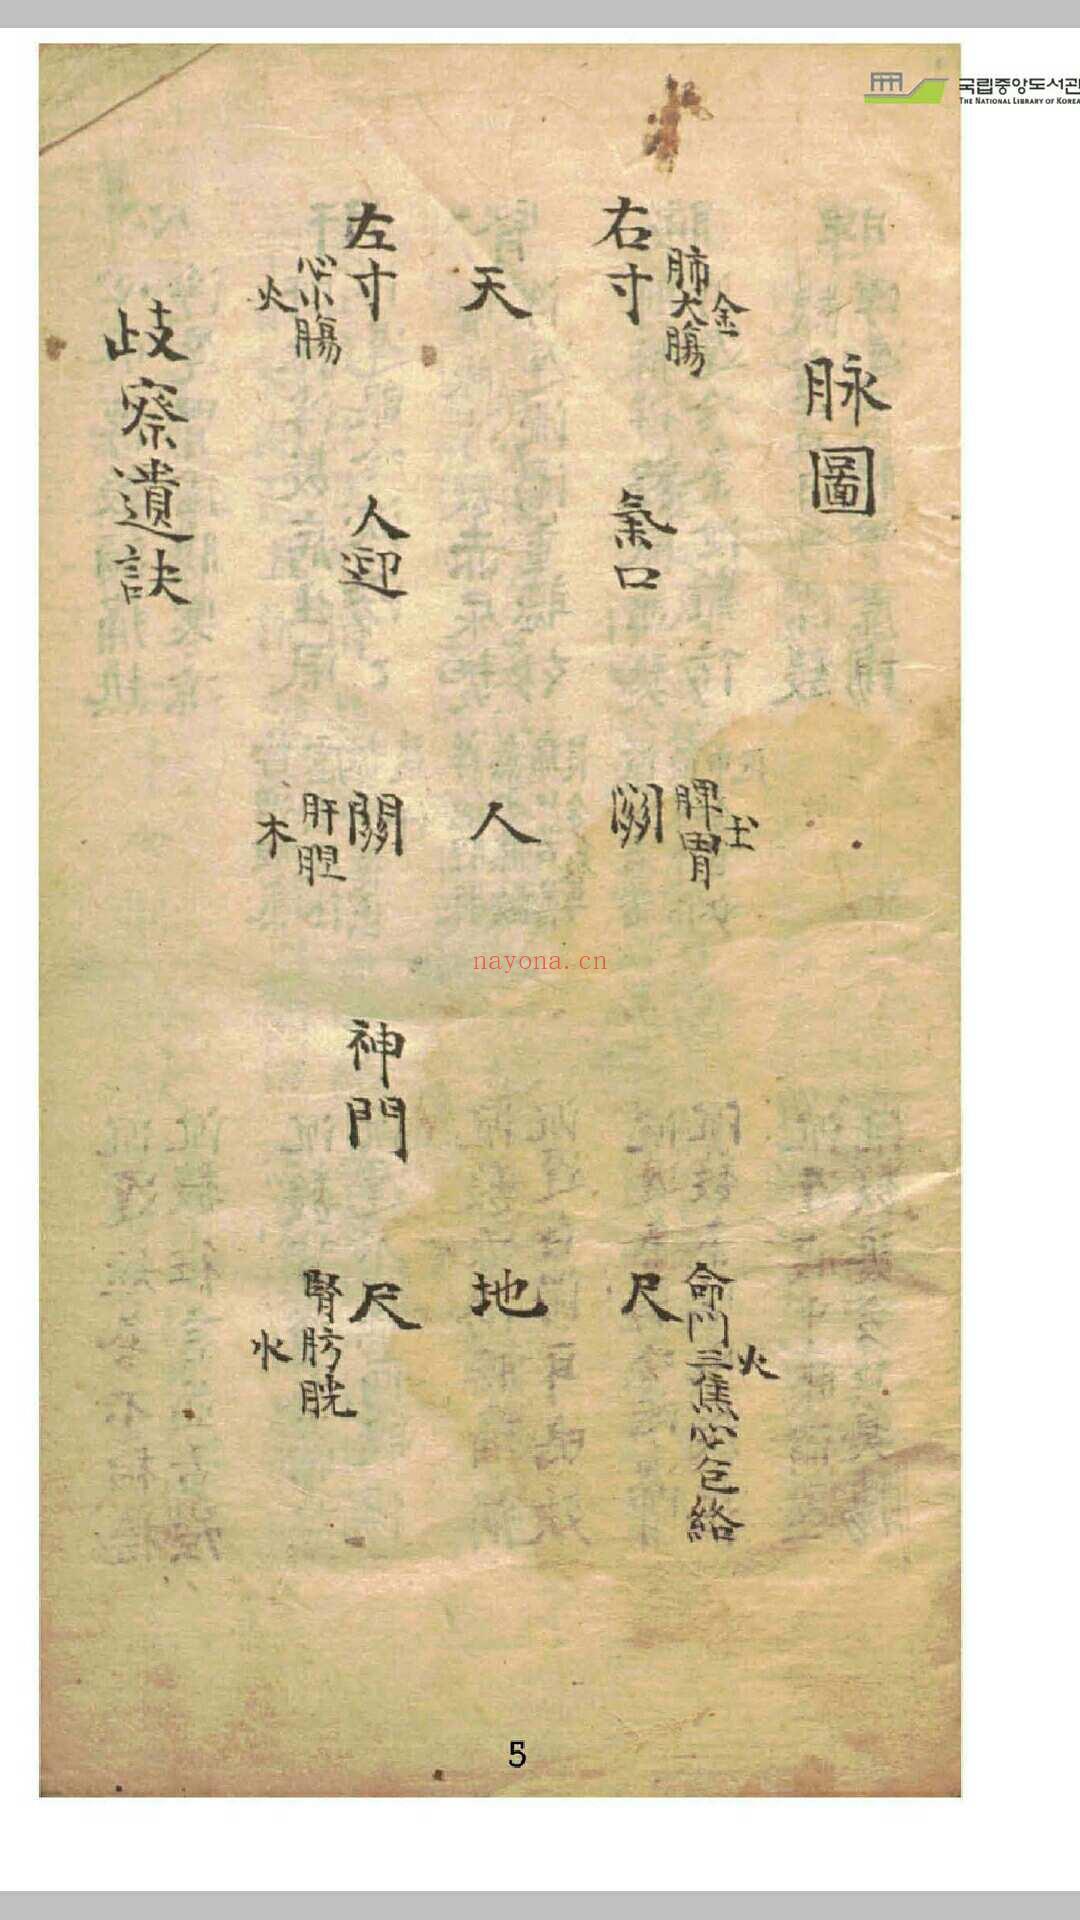 국립중앙도서관
THE NATIONAL LIBRARY OF KOREA
脉圖
右寸 肺大膓 金
氣口
関 脾胃 土
尺 命門三焦心包絡 火
天
人
地
左寸 心小膓 火
人迎
關 肝胆 木
神門
尺 腎膀胱 水
歧察遺訣
nayona.cn
5